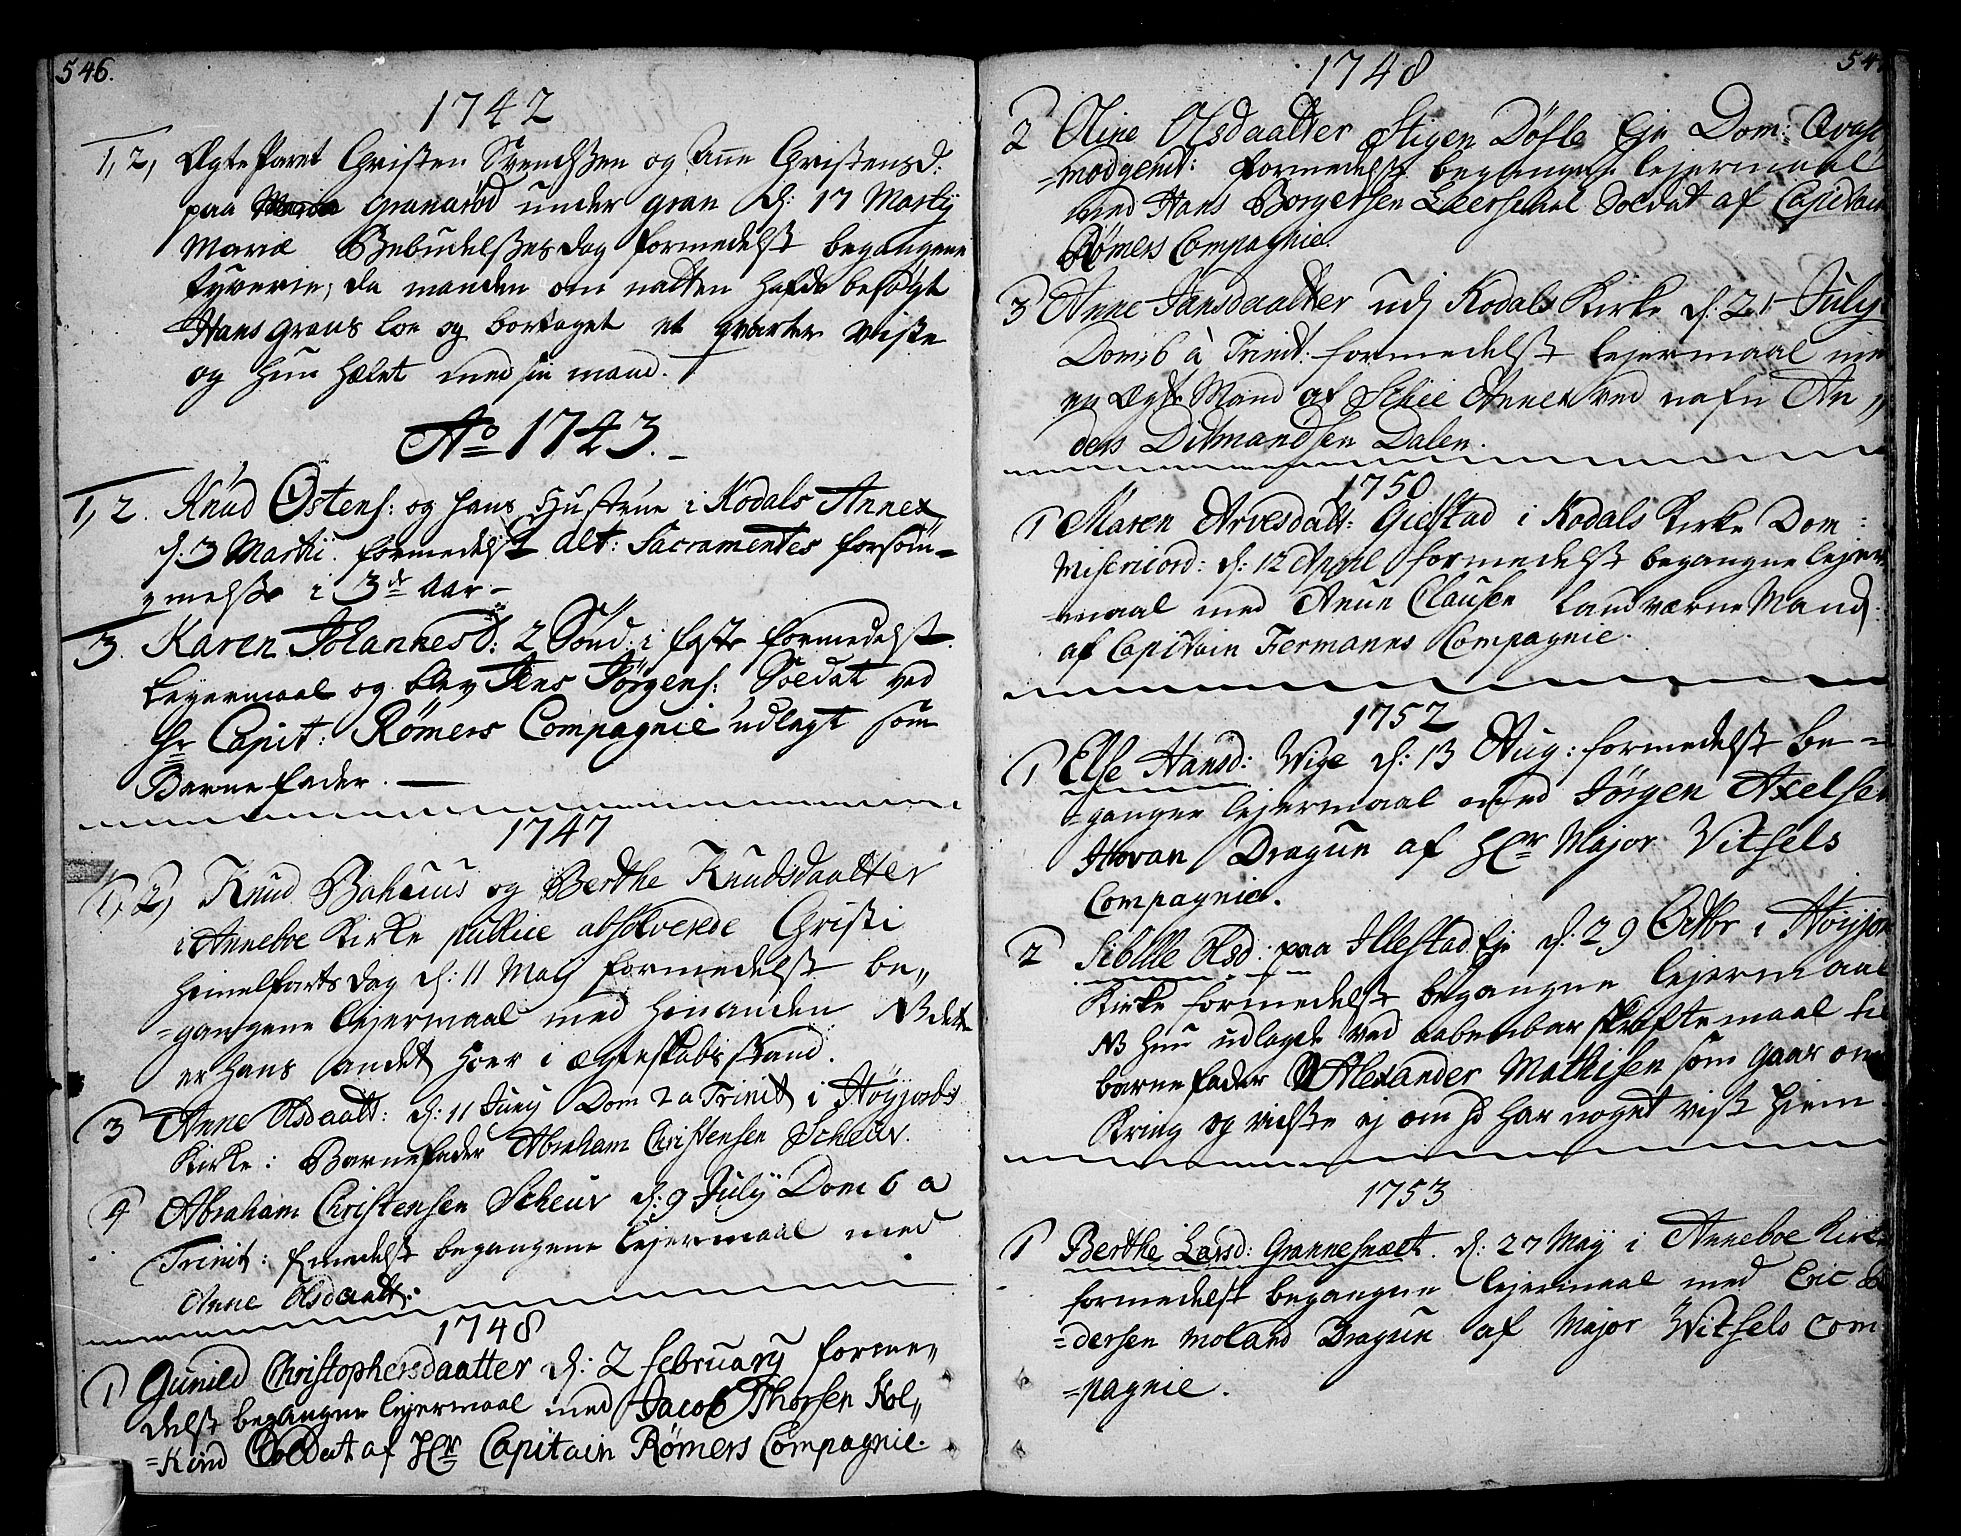 546.
1742
1, 2, Ægte Paret Christen Svendssen og Anne Christensd:
paa Granarød under gran d: 17 Martij
Mariæ Bebudelsses dag formedelst begangene
tyverie, da manden om natten hafde besøgt
Hans grans loe og bortaget et qvarter
og hun hælet med sin mand.
Ao 1743.
1, 2. Knud Østens: og hans Hustrue i Kodals Annex
d: 3 Martii formedelst alt: Sacramentes forsøm-
melsse i 3de Aar-
3. Karen Johannesd: 2 Sønd: i faste formedelst
Leyermaal og blev Jens Jørgens: Soldat ved
Hr Capit: Rømers Compagnie udlagt som
Barnefader.
1747
1, 2, Knud Bahuus og Berthe Knudsdaatter
i Anneboe Kirke publice absolverede Christi
Himelfarts dag d: 11 Maij formedelst be„
=gangene lejermaal med hinanden NB det
er hans andet hoer i ægteskabs stand.
3 Anne Olsdaatt: d: 11 Junij Dom 2 a Trinit i Høyjords
Kirke: Barnefader Abraham Christensen Scheuv.
4 Abraham Christensen Scheuv d: 9 Julij Dom 6 a
Trinit: formedelst begangene lejermaal med
Anne Olsdaatt:
1748
1 Gunild Christophersdaatter d: 2 february forme„
delst begangne lejermaal med Jacob Thorsen Kol„
=Kind Soldat af Hr Capitain Rømers Compagnie.
1748
54
2 Oline Olsdaatter Stigen Døfle Eje Dom: Qvasi
=modgenit: formedelst begangne lejermaal
med Hans Borgersen Leerschal Soldat af Capitain
Rømers Compagnie.
3 Anne Jansdaatter udj Kodals Kirke d: 21 July
Dom: 6 à Trinit: formedelst lejermaal me
en Ægte Mand af Schee Annex ved nafn An„
ders Ditmandsen Dalen.
1750
1 Maren Arvesdatt: Gielstad i Kodals Kirke Dom:
Misericord: d: 12 April formedelst begangne lejer
=maal med Anun Clausen Landværne Mand
af Capitain Fermanns Compagnie.
1752
1 Else Hansd: Wige d: 13 Aug: formedelst be=
=gangne lejermaal med Jørgen Axelsen
Hovan Dragun af Hr Major Vitsels
Compagnie.
2 Sibille Olsd: paa Illestad Eje d: 29 Octbr i Høyjor
Kirke formedelst begangne lejermaal
NB hun udlagde ved aabenbar skriftemaal til
barnefader Alexander Mathisen som gaar om
Kring og vidste ej om hd har noget vist hiem
1753
1 Berthe Larsd: Grannesnæet. d: 27 Maij i Anneboe Kirke
formedelst begangne lejermaal med Eric
=dersen Moland Dragun af Major Witsels Com
=pagnie.